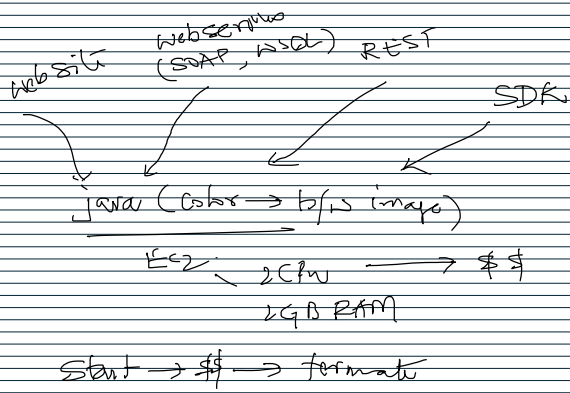 webservices
website (SOAP, WSDL) REST
SDK
java (color → b/w image)
EC2 2CPU → $ $
2GB RAM
Start → $$ → terminate